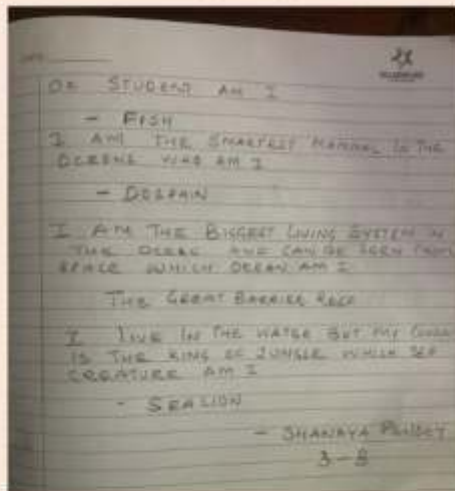 OF STUDENT AM I
- FISH
I AM THE SMARTEST MAMMAL IN THE
OCEANS WHO AM I
- DOLPHIN
I AM THE BIGGEST LIVING SYSTEM IN
THE OCEAN AND CAN BE SEEN FROM
SPACE WHICH OCEAN AM I
THE GREAT BARRIER REEF
I LIVE IN THE WATER BUT MY
IS THE KING OF JUNGLE WHICH SEA
CREATURE AM I
- SEALION
- SHANAYA PANDEY
3-B